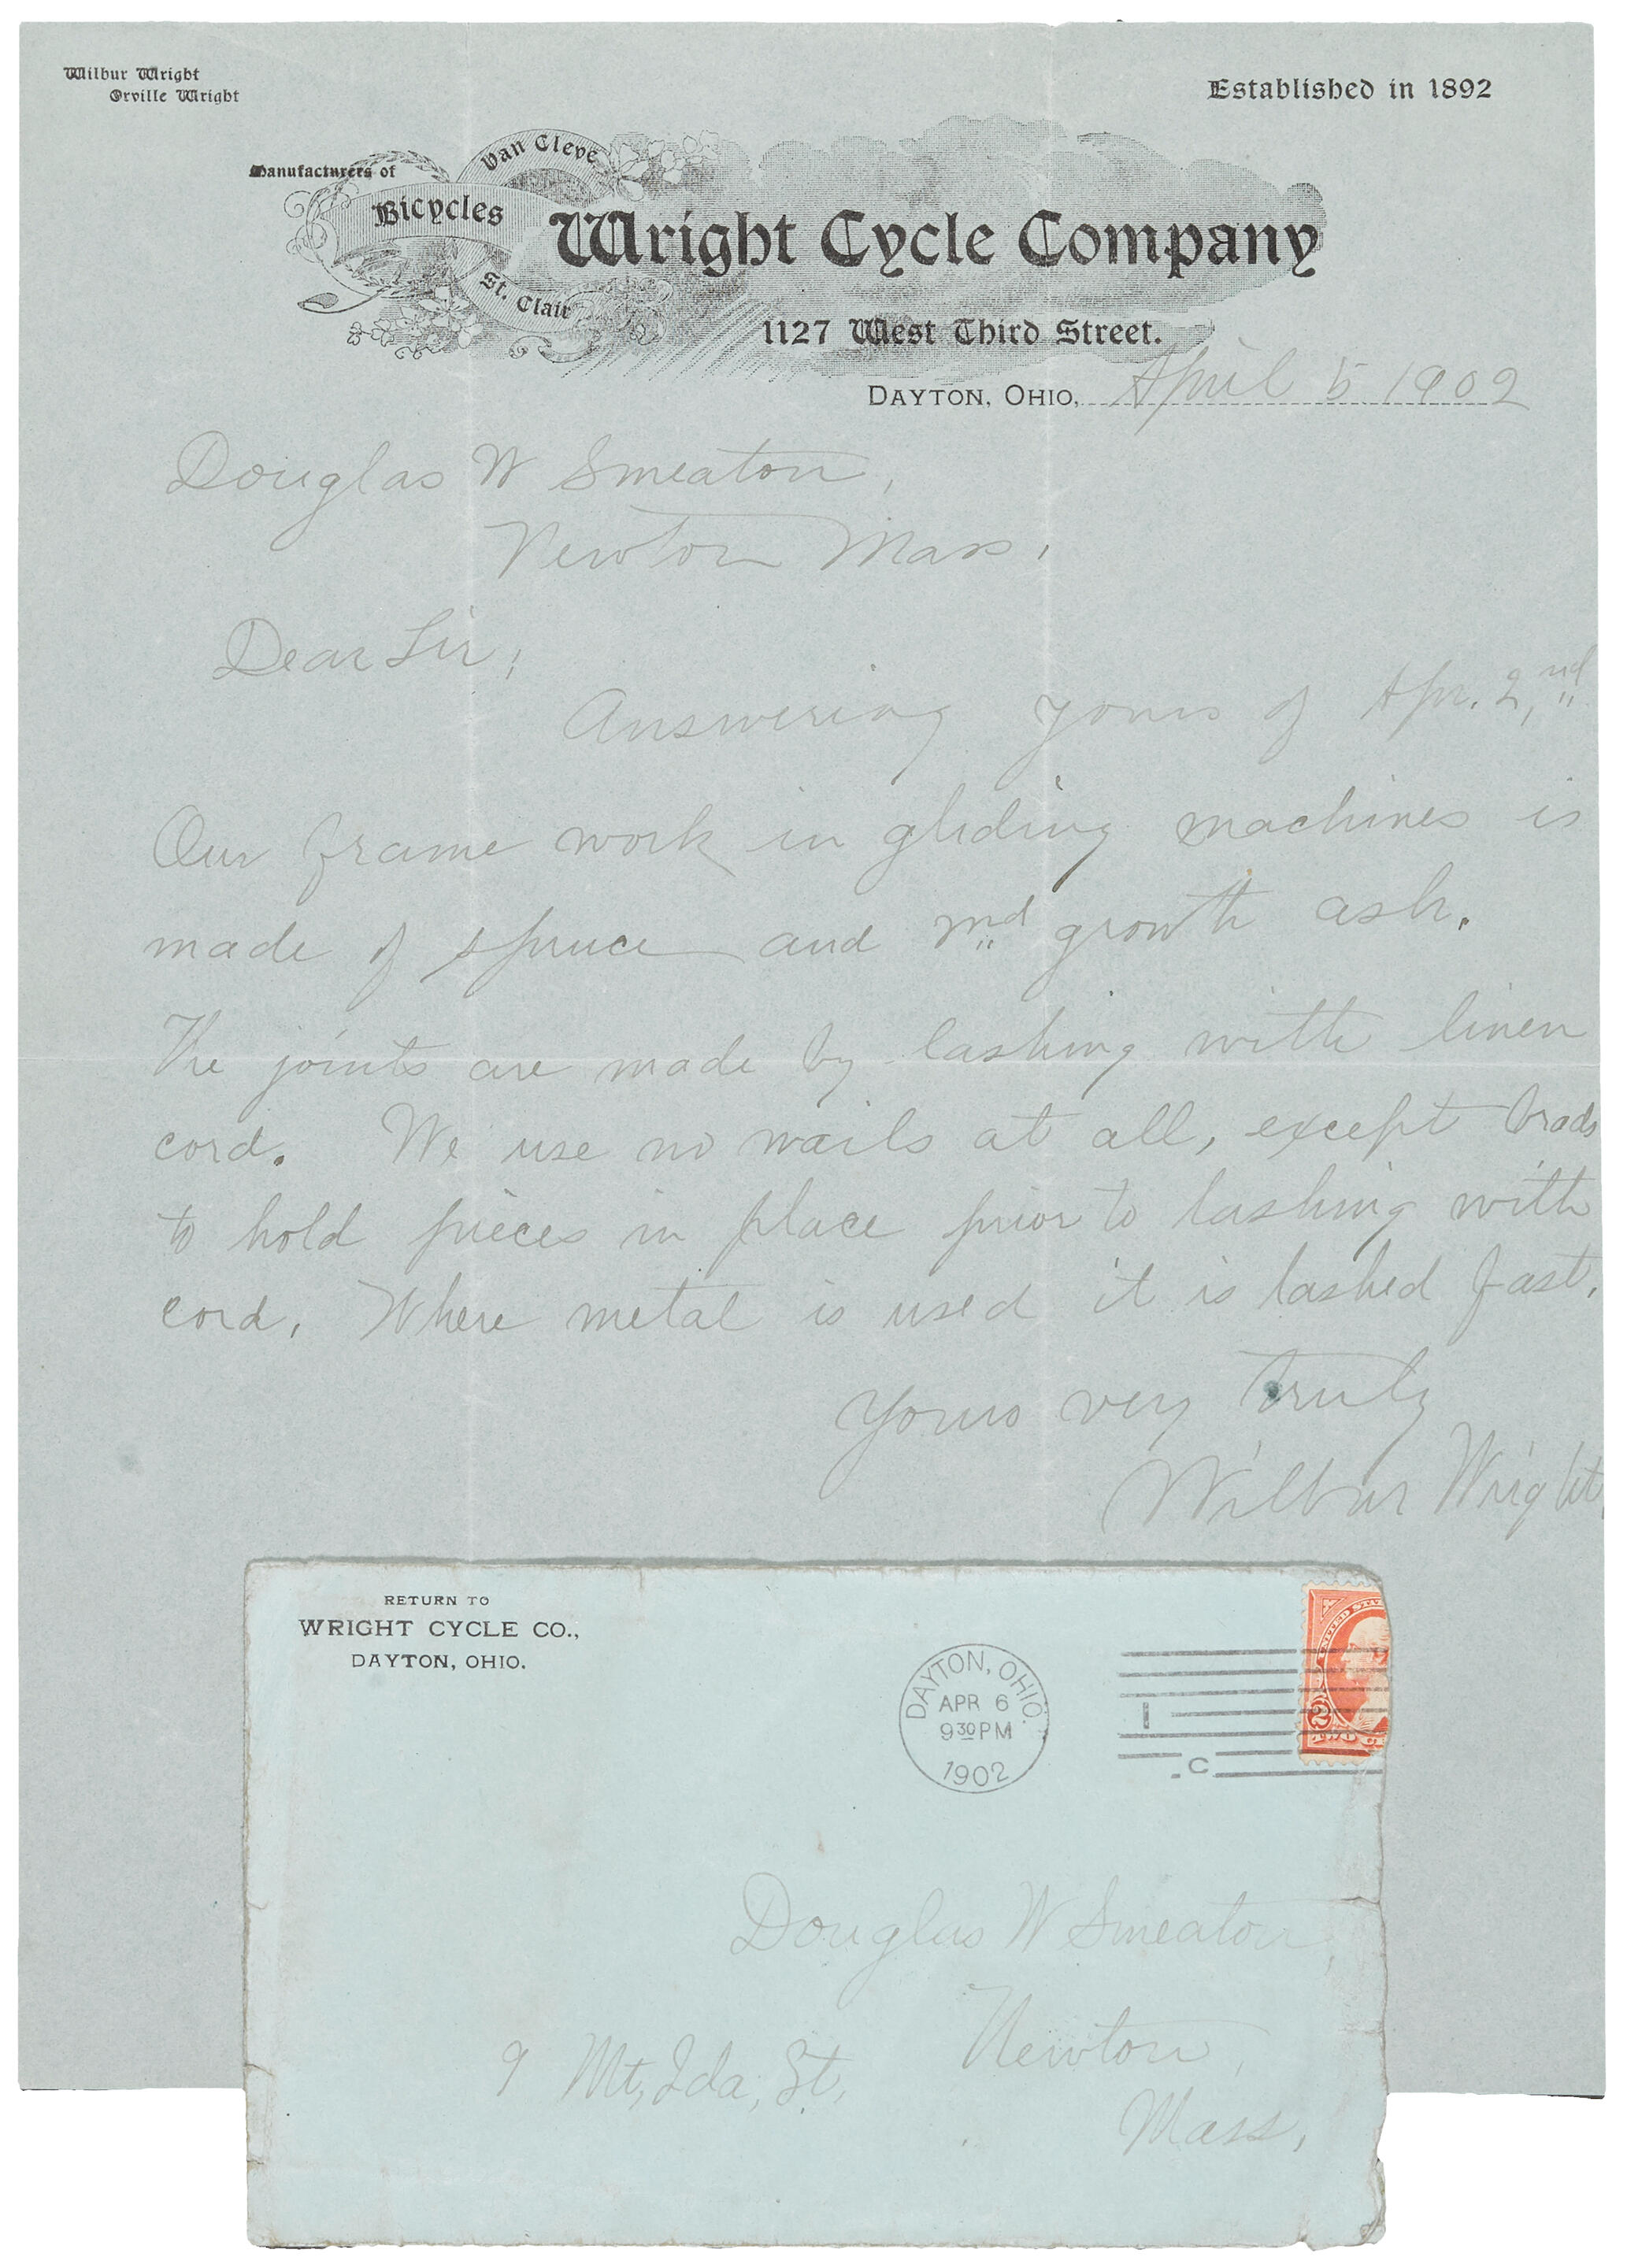 Wilbur Wright
Orville Wright
Established in 1892
Manufacturers of
Van Cleve
Bicycles
St. Clair
Wright Cycle Company
1127 West Third Street.
DAYTON, OHIO, April 5 1902
Douglas W Smeaton,
Newton Mass.
Dear Sir;
Answering yours of Apr. 2,nd
Our frame work in gliding machines is
made of spruce and 2nd growth ash.
The joints are made by lashing with linen
cord. We use no nails at all, except brads
to hold pieces in place prior to lashing with
cord. Where metal is used it is lashed fast.
Yours very truly
Wilbur Wright.
RETURN TO
WRIGHT CYCLE CO.,
DAYTON, OHIO.
DAYTON, OHIO.
APR 6
9 30 PM
1902
1
C
UNITED STA
2
TWO C
Douglas W Smeaton,
Newton,
9 Mt, Ida, St,
Mass,